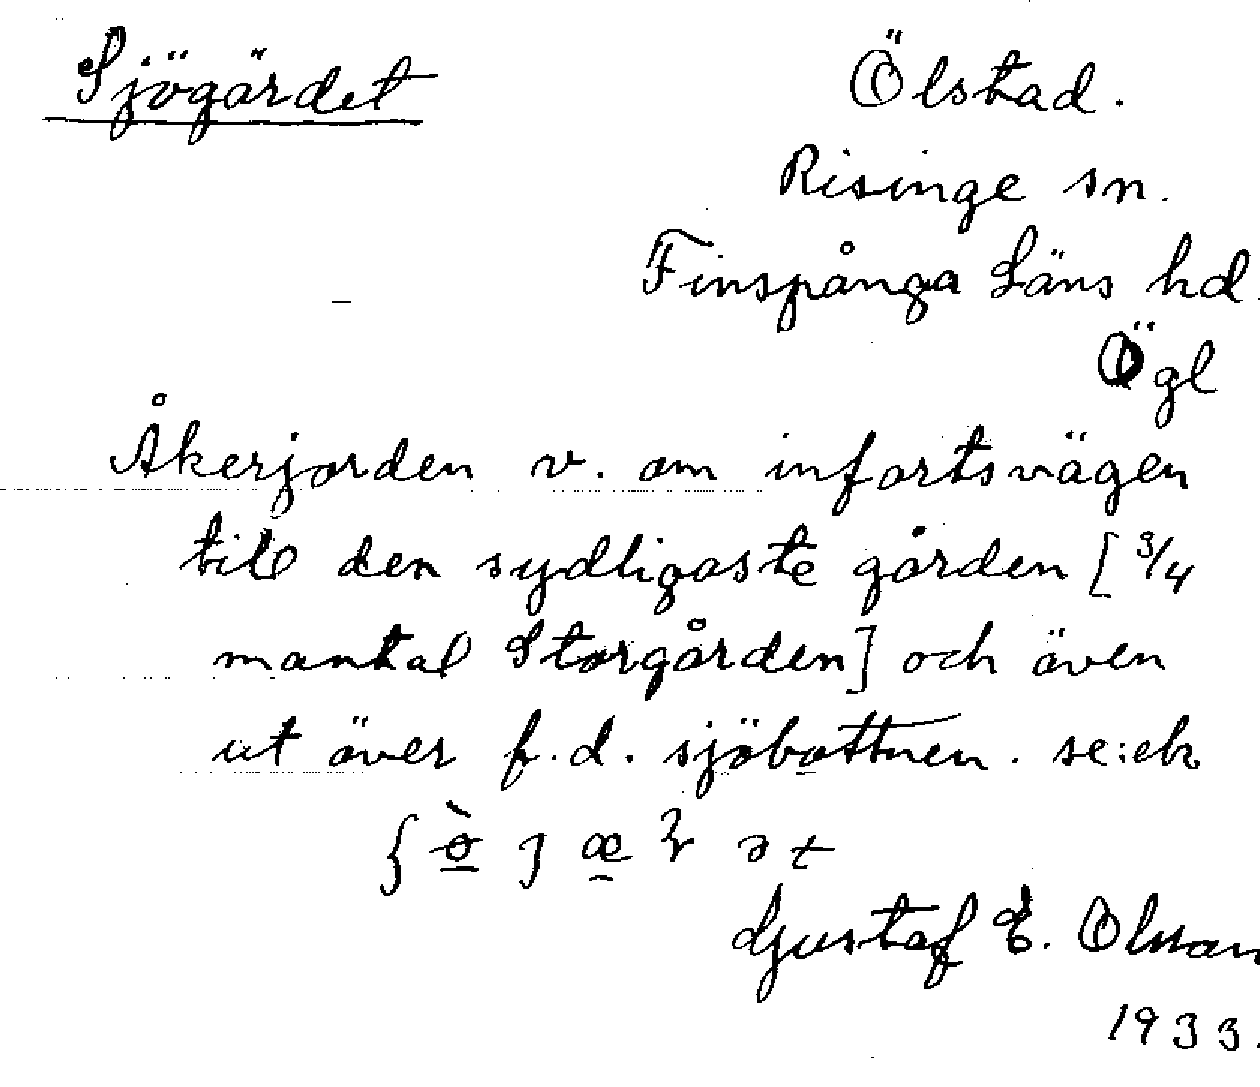 Sjögärdet
Ölstad.
Risinge sn.
Finspånga Läns hd.
Ögl
Åkerjorden v. om infartsvägen
till den sydligaste gården [3/4
mantal Storgården] och även
ut över f.d. sjöbottnen. se: ek
Gustaf E. Olsson
1933.